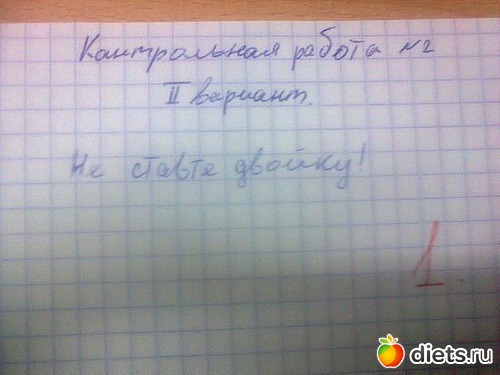 Контрольная работа №2
II вариант.
Не ставте двойку!
1.
diets.ru